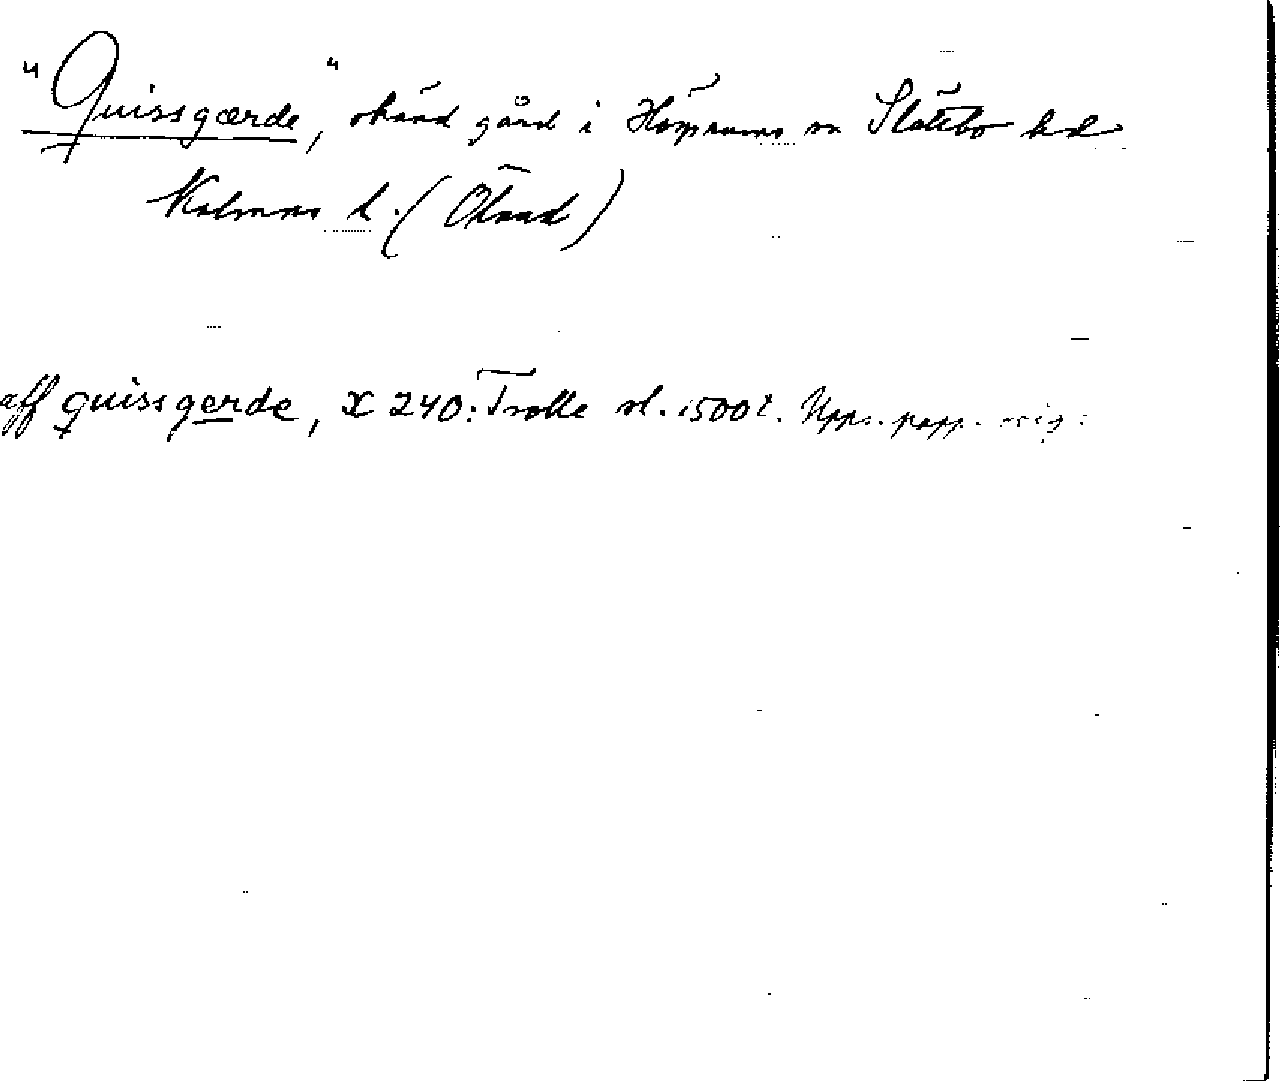 "Quissgærde", okänd gård i Högsrums sn Slättbo hd
Kalmar l. (Öland)
aff quissgerde, X 240: Trolle sl. 1500 t. Upps. papp. orig.